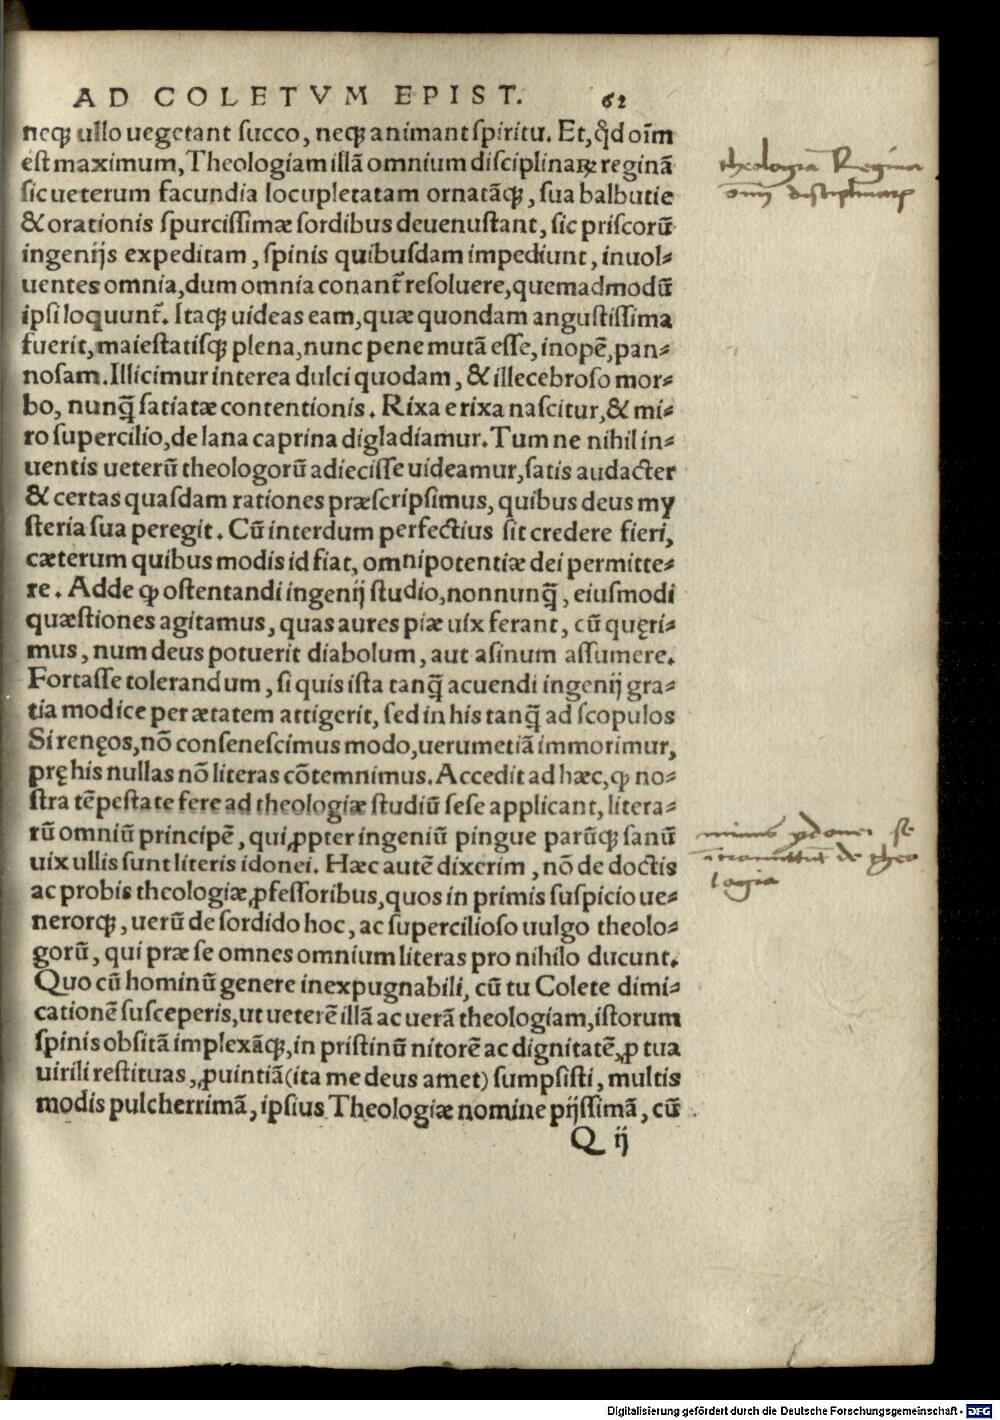 AD COLETVM EPIST. 62
neqꝫ ullo uegetant succo, neqꝫ animant spiritu. Et, qđ oīm
est maximum, Theologiam illā omnium disciplinaꝝ reginā
sic ueterum facundia locupletatam ornatāqꝫ, sua balbutie
& orationis spurcissimæ sordibus deuenustant, sic priscorū
ingenijs expeditam, spinis quibusdam impediunt, inuol⸗
uentes omnia, dum omnia conant᷑ resoluere, quemadmodū
ipsi loquunt᷑. Itaqꝫ uideas eam, quæ quondam angustissima
fuerit, maiestatisqꝫ plena, nunc pene mutā esse, inopē, pan⸗
nosam. Illicimur interea dulci quodam, & illecebroso mor⸗
bo, nunq̄ satiatæ contentionis. Rixa e rixa nascitur, & mi⸗
ro supercilio, de lana caprina digladiamur. Tum ne nihil in⸗
uentis ueterū theologorū adiecisse uideamur, satis audacter
& certas quasdam rationes præscripsimus, quibus deus my
steria sua peregit. Cū interdum perfectius sit credere fieri,
cæterum quibus modis id fiat, omnipotentiæ dei permitte⸗
re. Adde ꝙ ostentandi ingenij studio, nonnunq̄, eiusmodi
quæstiones agitamus, quas aures piæ uix ferant, cū quęri⸗
mus, num deus potuerit diabolum, aut asinum assumere.
Fortasse tolerandum, si quis ista tanq̄ acuendi ingenij gra⸗
tia modice per ætatem attigerit, sed in his tanq̄ ad scopulos
Sirenęos, nō consenescimus modo, uerumetiā immorimur,
prę his nullas nō literas cōtemnimus. Accedit ad hæc, ꝙ no⸗
stra tēpestate fere ad theologiæ studiū sese applicant, litera⸗
rū omniū principē, qui ꝓpter ingeniū pingue parūqꝫ sanū
uix ullis sunt literis idonei. Hæc autē dixerim, nō de doctis
ac probis theologiæ ꝓfessoribus, quos in primis suspicio ue⸗
nerorqꝫ, uerū de sordido hoc, ac supercilioso uulgo theolo⸗
gorū, qui præ se omnes omnium literas pro nihilo ducunt.
Quo cū hominū genere inexpugnabili, cū tu Colete dimi⸗
cationē susceperis, ut ueterē illā ac uerā theologiam, istorum
spinis obsitā implexāqꝫ, in pristinū nitorē ac dignitatē, ꝓ tua
uirili restituas, ꝓuintiā (ita me deus amet) sumpsisti, multis
modis pulcherrimā, ipsius Theologiæ nomine pijssimā, cū
Q ij
theologiā Regina
oīm disciplinarꝝ
minus ydonei se
ītromittūt de theo
logia
Digitalisierung gefördert durch die Deutsche Forschungsgemeinschaft - DFG